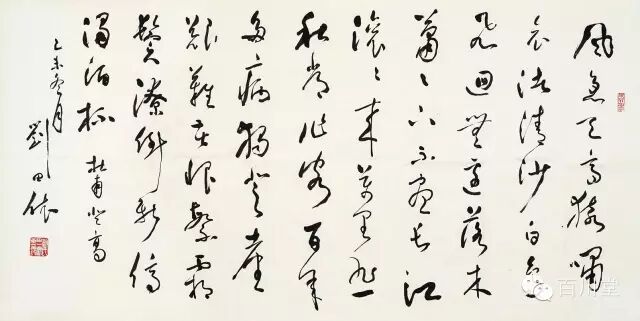 風急天高猿嘯
哀渚清沙白鳥
飛迴無邊落木
蕭々下不盡長江
滾々來萬里悲
秋常作客百年
多病獨登臺
艱難苦恨繁霜
鬢潦倒新停
濁酒杯 杜甫登高
乙未冬月 劉田依
百川堂